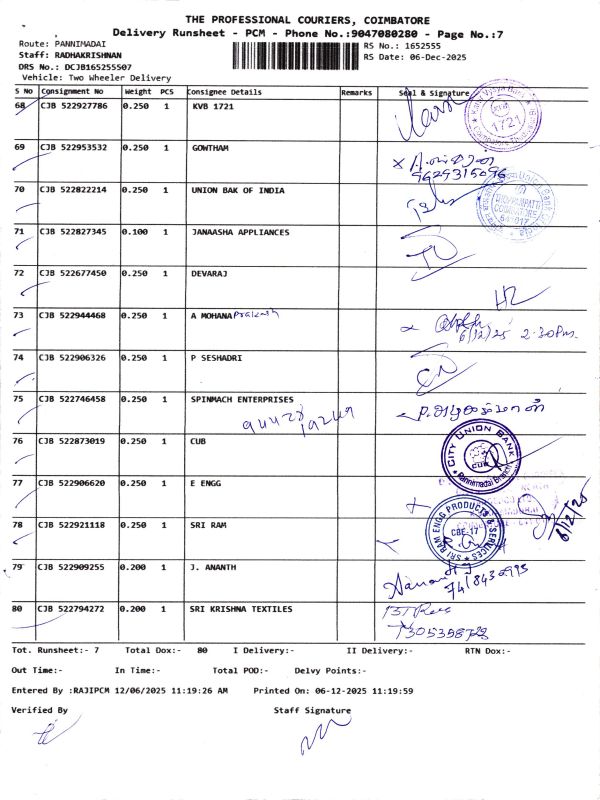 THE PROFESSIONAL COURIERS, COIMBATORE
Delivery Runsheet - PCM - Phone No.:9047080280 - Page No.:7
Route: PANNIMADAI
RS No.: 1652555
Staff: RADHAKRISHNAN
RS Date: 06-Dec-2025
DRS No.: DCJB165255507
Vehicle: Two Wheeler Delivery
S No Consignment No Weight PCS Consignee Details Remarks Seal & Signature
68 CJB 522927786 0.250 1 KVB 1721
1721
69 CJB 522953532 0.250 1 GOWTHAM
9629315096
70 CJB 522822214 0.250 1 UNION BAK OF INDIA
71 CJB 522827345 0.100 1 JANAASHA APPLIANCES
72 CJB 522677450 0.250 1 DEVARAJ
73 CJB 522944468 0.250 1 A MOHANA Prakash
6/12/25 2.30 Pm.
74 CJB 522906326 0.250 1 P SESHADRI
75 CJB 522746458 0.250 1 SPINMACH ENTERPRISES
76 CJB 522873019 0.250 1 CUB
CITY UNION BANK
CUB
Pannimadai Branch
77 CJB 522906620 0.250 1 E ENGG
6/12/25
78 CJB 522921118 0.250 1 SRI RAM
SRI RAM ENGG PRODUCTS & SERVICES
CBE-17
79 CJB 522909255 0.200 1 J. ANANTH
7418432993
80 CJB 522794272 0.200 1 SRI KRISHNA TEXTILES
Tot. Runsheet:- 7 Total Dox:- 80 I Delivery:- II Delivery:- RTN Dox:-
Out Time:- In Time:- Total POD:- Delvy Points:-
Entered By :RAJIPCM 12/06/2025 11:19:26 AM Printed On: 06-12-2025 11:19:59
Verified By Staff Signature